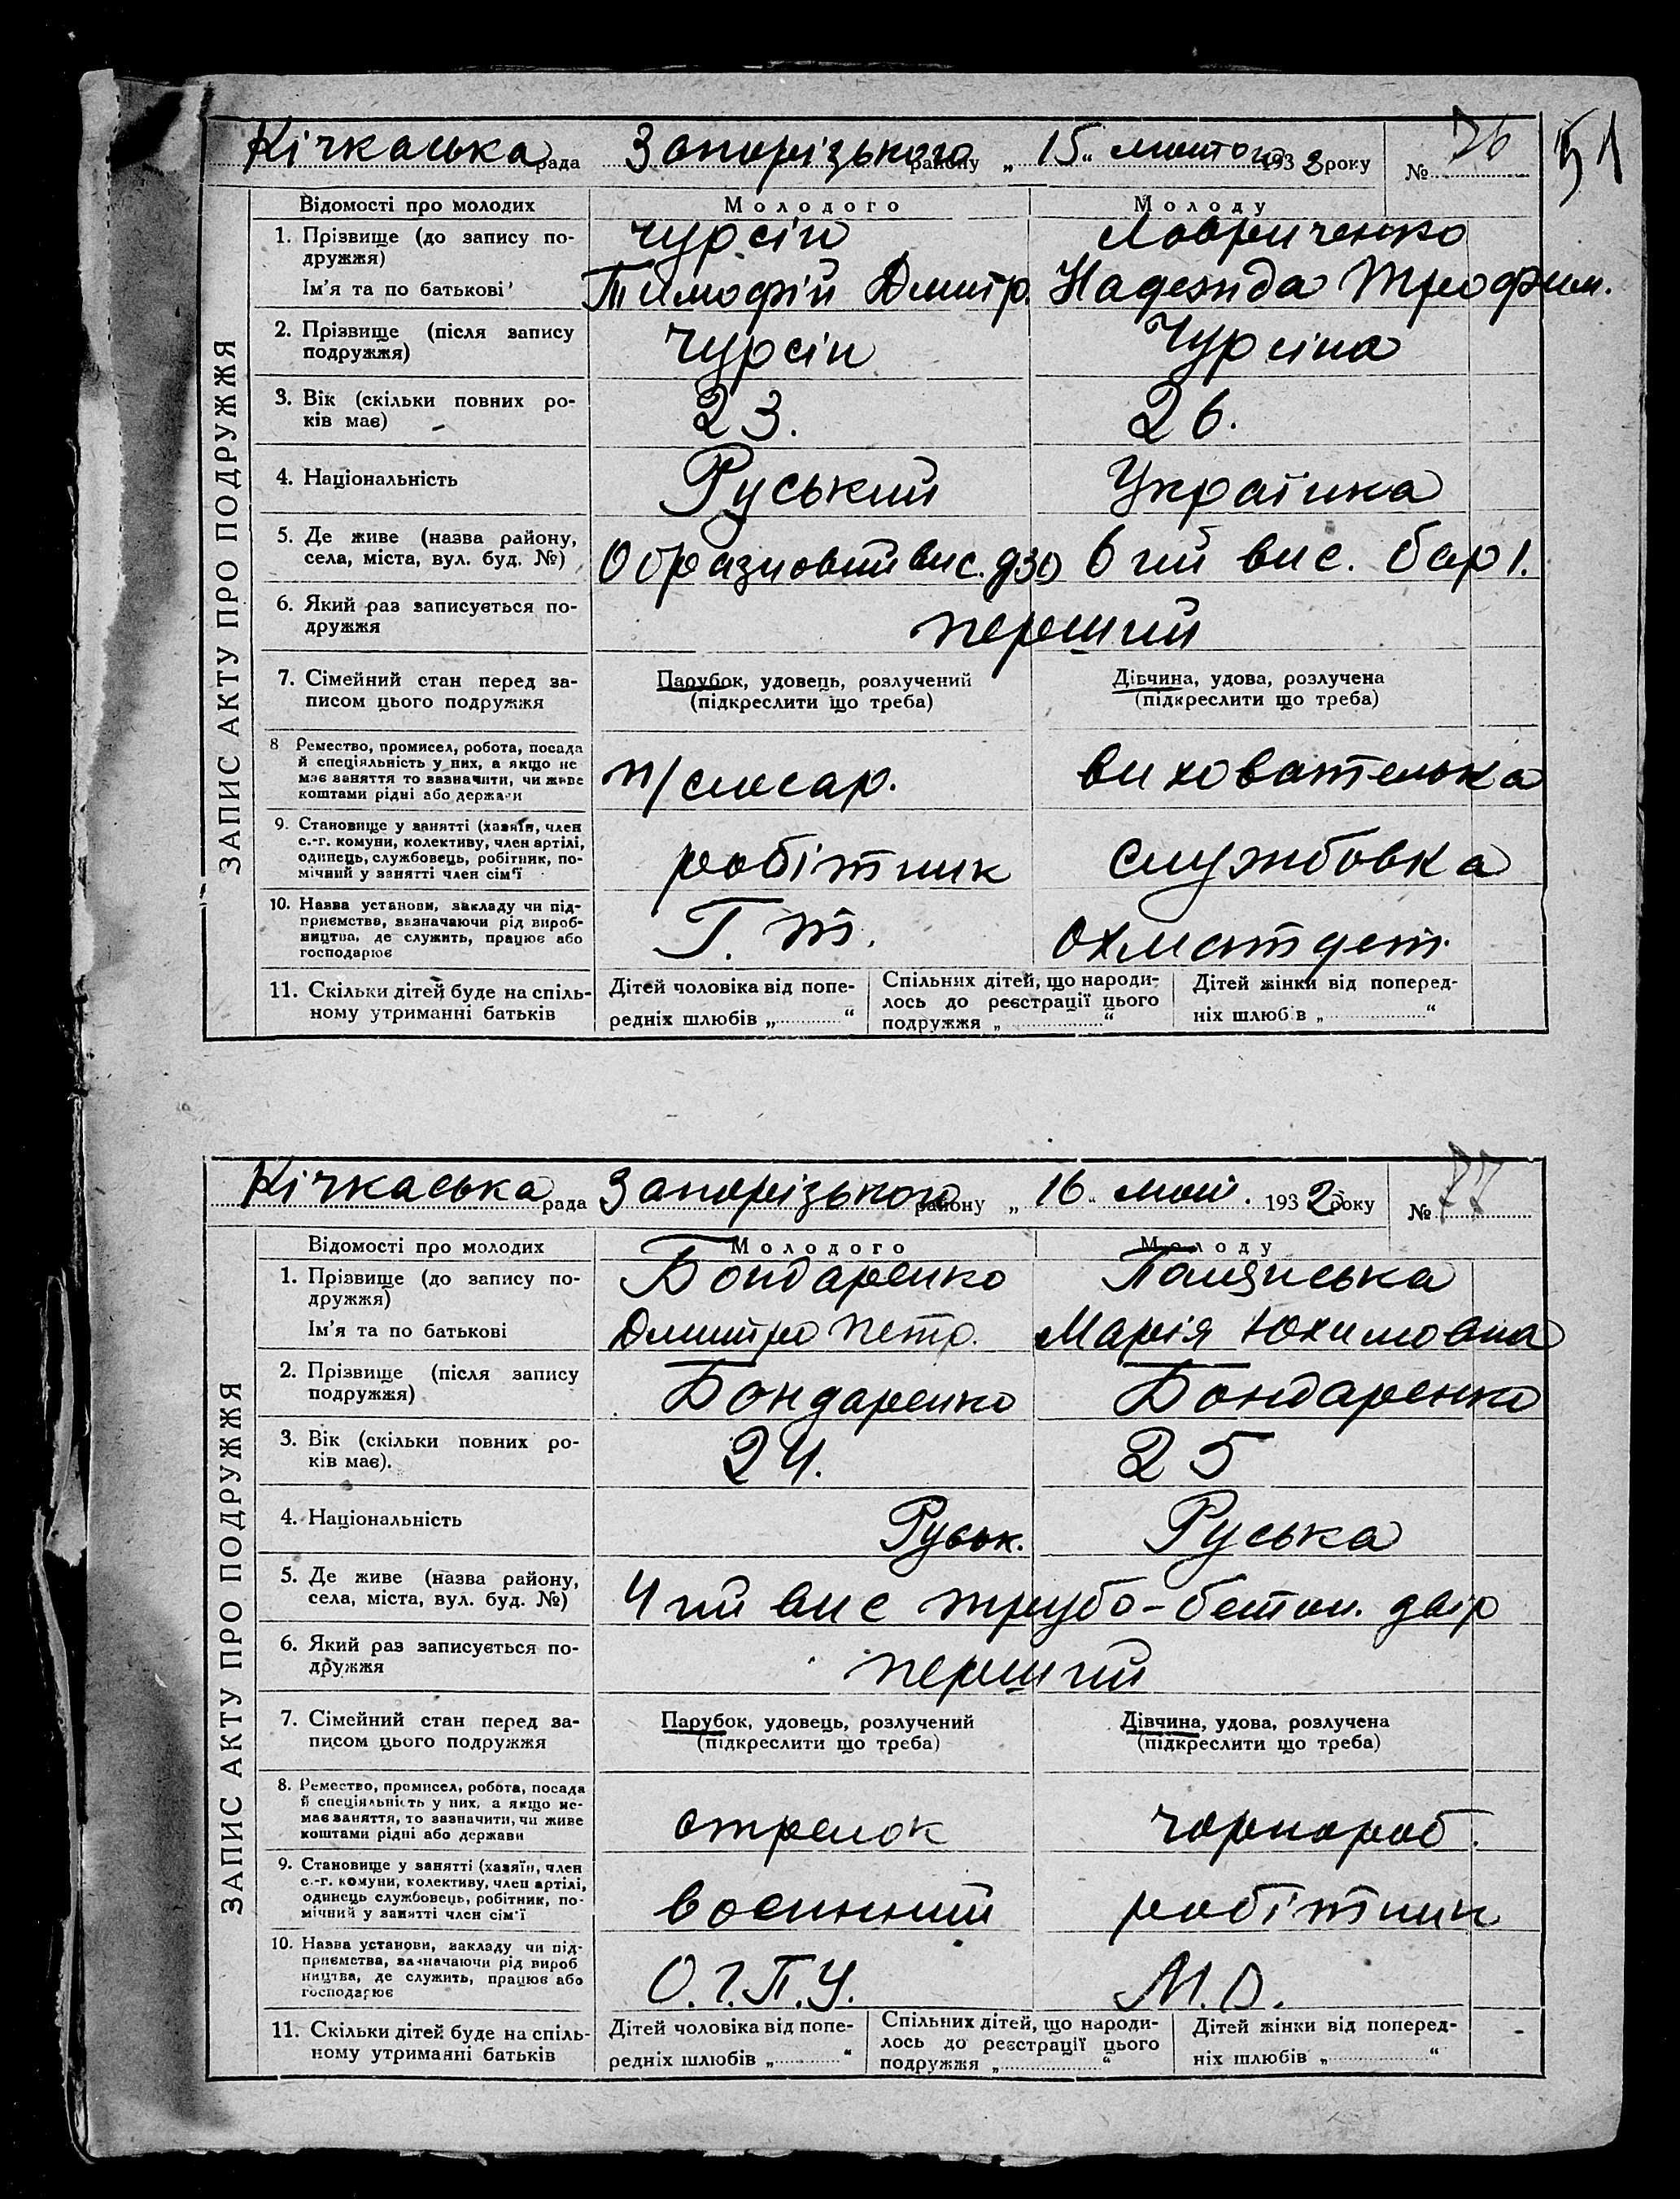 Кічкаська рада Запорізького району „15“ лютого 1932 року № 76
51
Відомості про молодих Молодого Молоду
1. Прізвище (до запису по-
дружжя) Чурсін Лавриченко
Ім'я та по батькові Тимофій Дмитр. Надежда Трофим.
2. Прізвище (після запису
подружжя) Чурсін Чурсіна
3. Вік (скільки повних ро-
ків має) 23. 26.
4. Національність Руський Українка
5. Де живе (назва району,
села, міста, вул. буд. №) Образновий вис. д30 6 ий вис. бар 1.
6. Який раз записується по-
дружжя перший
7. Сімейний стан перед за-
писом цього подружжя Парубок, удовець, розлучений
(підкреслити що треба) Дівчина, удова, розлучена
(підкреслити що треба)
8 Ремество, промисел, робота, посада
й спеціяльність у них, а якщо не
має заняття то зазначити, чи живе
коштами рідні або держави п/слюсар. вихователька
9. Становище у занятті (хазяїн, член
с.-г. комуни, колективу, член артілі,
одинець, службовець, робітник, по-
мічний у занятті член сім'ї робітник службовка
10. Назва установи, закладу чи під-
приємства, зазначаючи рід вироб-
ництва, де служить, працює або
господарює Г. т. Охматдет.
11. Скільки дітей буде на спіль-
ному утриманні батьків Дітей чоловіка від попе-
редніх шлюбів „ “ Спільних дітей, що народи-
лось до реєстрації цього
подружжя „ “ Дітей жінки від поперед-
ніх шлюбів „ “
ЗАПИС АКТУ ПРО ПОДРУЖЖЯ
Кічкаська рада Запорізького району „16“ 1932 року № 77
Відомості про молодих Молодого Молоду
1. Прізвище (до запису по-
дружжя) Бондаренко
Ім'я та по батькові Дмитро Петр. Марія Юхимовна
2. Прізвище (після запису
подружжя) Бондаренко Бондаренко
3. Вік (скільки повних ро-
ків має). 24. 25
4. Національність Руськ. Руська
5. Де живе (назва району,
села, міста, вул. буд. №) 4 ий вис трубо-бетон. двір
6. Який раз записується по-
дружжя перший
7. Сімейний стан перед за-
писом цього подружжя Парубок, удовець, розлучений
(підкреслити що треба) Дівчина, удова, розлучена
(підкреслити що треба)
8. Ремество, промисел, робота, посада
й спеціяльність у них, а якщо не-
має заняття, то зазначити, чи живе
коштами рідні або держави стрелок чорнороб.
9. Становище у занятті (хазяїн, член
с.-г. комуни, колективу, член артілі,
одинець службовець, робітник, по-
мічний у занятті член сім'ї военний робітник
10. Назва установи, закладу чи під-
приємства, зазначаючи рід вироб
ництва, де служить, працює або
господарює О.Г.П.У. М.О.
11. Скільки дітей буде на спіль-
ному утриманні батьків Дітей чоловіка від попе-
редніх шлюбів „ “ Спільних дітей, що народи-
лось до реєстрації цього
подружжя „ “ Дітей жінки від поперед-
ніх шлюбів „ “
ЗАПИС АКТУ ПРО ПОДРУЖЖЯ